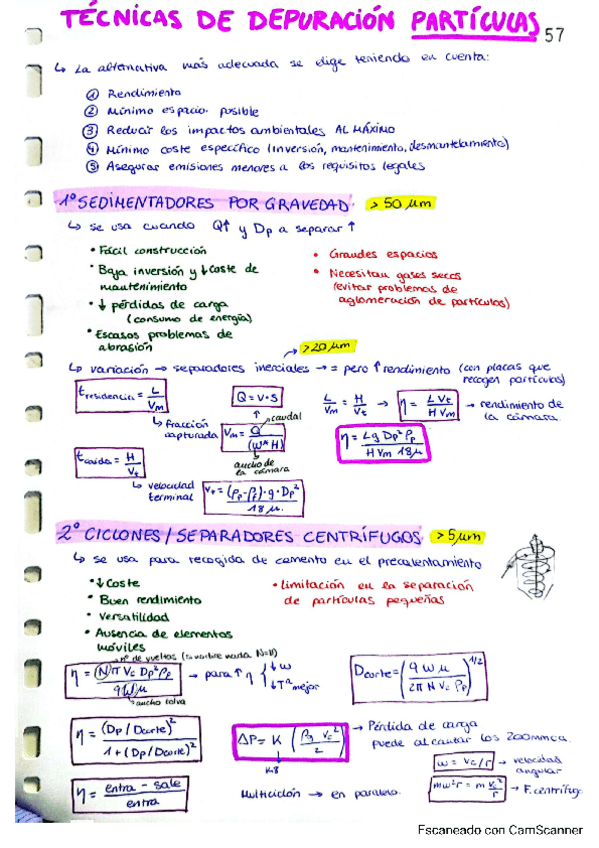 TÉCNICAS DE DEPURACIÓN PARTÍCULAS 57
↳ La alternativa más adecuada se elige teniendo en cuenta:
① Rendimiento
② Mínimo espacio posible
③ Reducir los impactos ambientales AL MÁXIMO
④ Mínimo coste específico (inversión, mantenimiento, desmantelamiento)
⑤ Asegurar emisiones menores a los requisitos legales
1º SEDIMENTADORES POR GRAVEDAD > 50 μm
↳ se usa cuando Q↑ y Dp a separar ↑
• Fácil construcción
• Baja inversión y ↓ coste de
mantenimiento
• ↓ pérdidas de carga
(consumo de energía)
• Escasos problemas de
abrasión
• Grandes espacios
• Necesitan gases secos
(evitar problemas de
aglomeración de partículas)
> 20 μm
↳ variación → separadores inerciales → = pero ↑ rendimiento (con placas que
recogen partículas)
t residencia = L / Vm
↳ fracción
capturada
Q = V · S
↑ caudal
Vm = Q / (W * H)
ancho de
la cámara
L / Vm = H / Vt → η = L Vt / H Vm → rendimiento de
la cámara
η = L g Dp² ρp / H Vm 18 μ
t caída = H / Vt
↳ velocidad
terminal
Vt = (ρp - ρf) · g · Dp² / 18 μ
2º CICLONES / SEPARADORES CENTRÍFUGOS > 5 μm
↳ se usa para recogida de cemento en el precalentamiento
• ↓ coste
• Buen rendimiento
• Versatilidad
• Ausencia de elementos
móviles
• Limitación en la separación
de partículas pequeñas
nº de vueltas
η = (N) π Vc Dp² ρp / 9 W μ → para ↑ η { ↓ W ↓ Tª mejor
ancho tolva
Dcorte = (9 W μ / 2 π N Vc ρp)^1/2
η = (Dp / Dcorte)² / 1 + (Dp / Dcorte)²
ΔP = K (ρg Vc² / 2)
K=8
→ Pérdida de carga
puede alcanzar los 200mmca.
ω = Vc / r → velocidad
angular
mω²r = m Vc² / r → F. centrífug.
η = entra - sale / entra
Multiciclón → en paralelo.
Escaneado con CamScanner